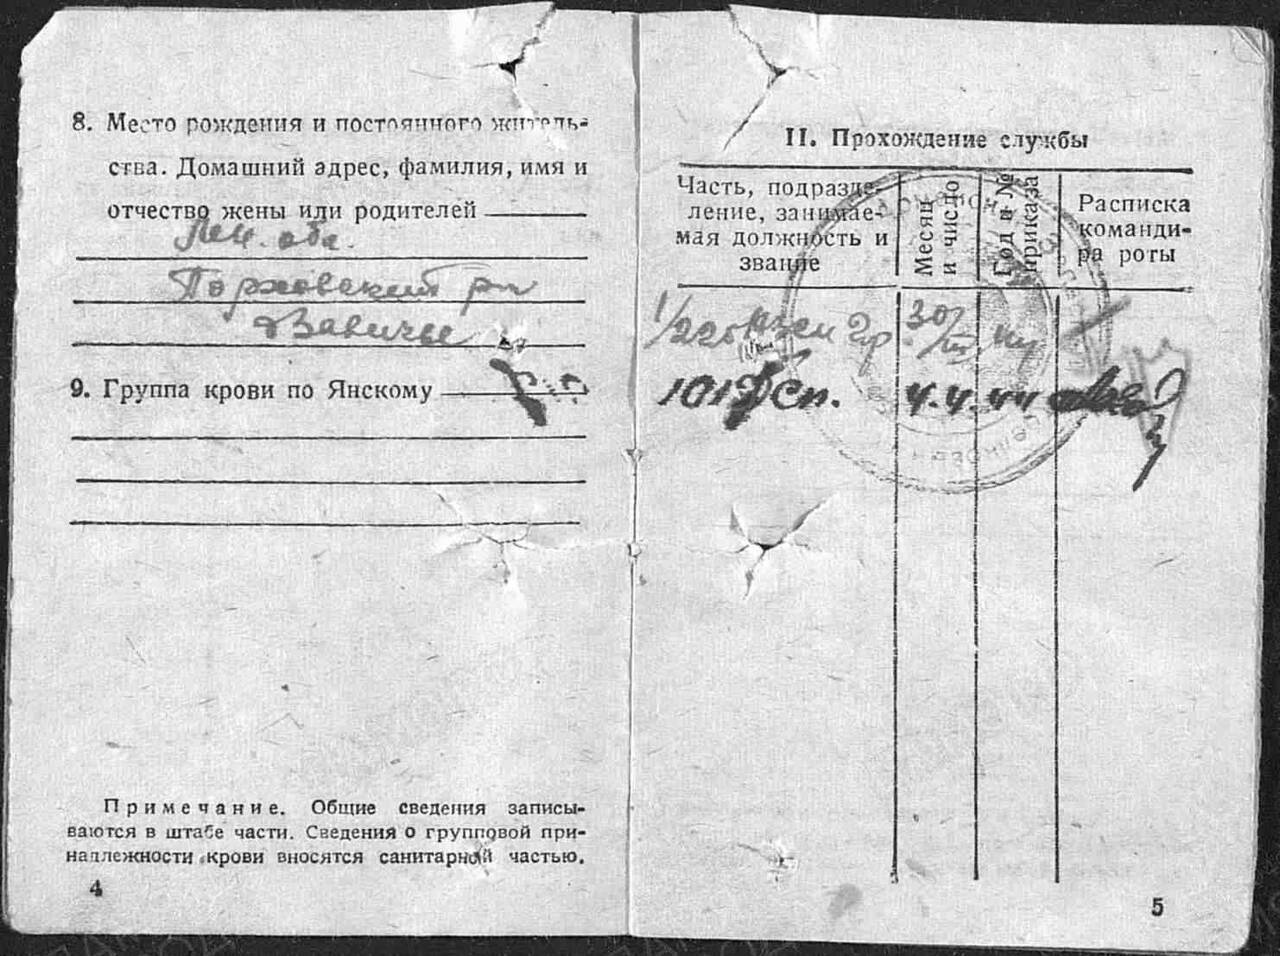 8. Место рождения и постоянного житель-
ства. Домашний адрес, фамилия, имя и
отчество жены или родителей
Лен. обл.
Порховский р-н
9. Группа крови по Янскому
Примечание. Общие сведения записы-
ваются в штабе части. Сведения о групповой при-
надлежности крови вносятся санитарной частью.
4
II. Прохождение службы
Часть, подразде-
ление, занимае-
мая должность и
звание
Месяц
и число
Год и №
приказа
Расписка
команди-
ра роты
1/225
30/III
101 сп. 4.4.44
5